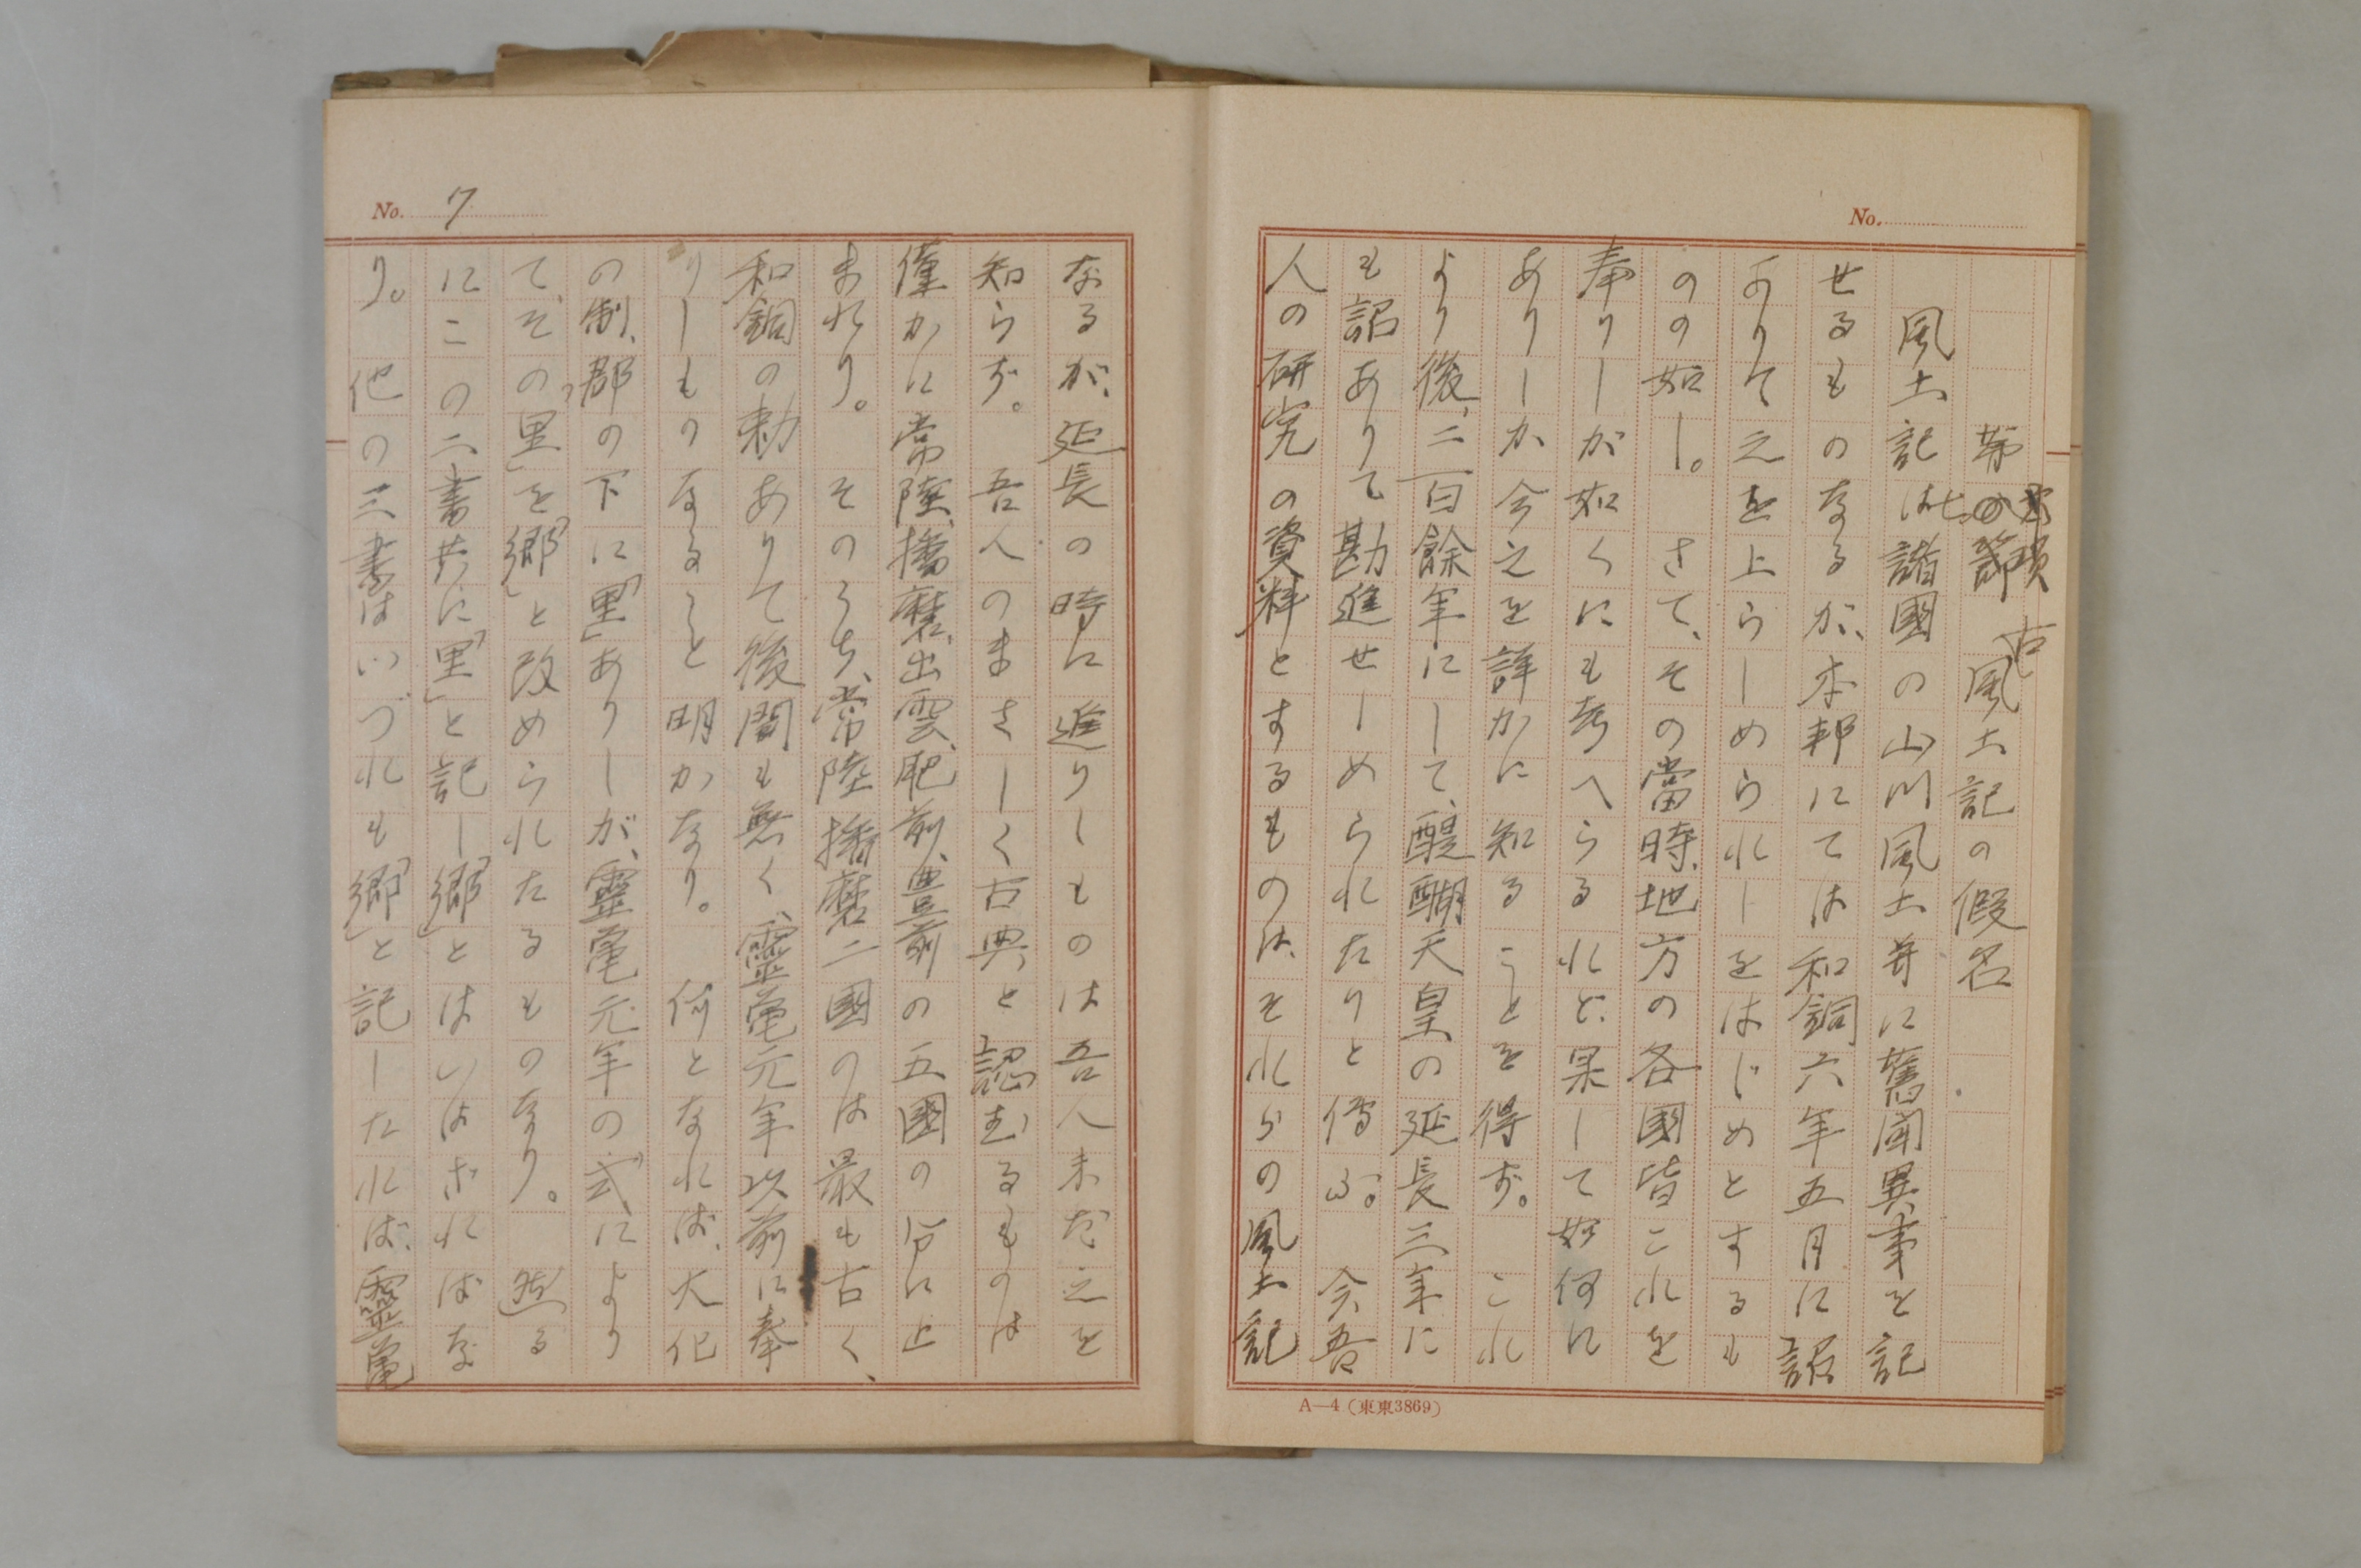 No.
第七項 古風土記の假名
風土記は諸國の山川風土并に舊聞異事を記
せるものなるが、本邦にては和銅六年五月に詔
ありて之を上らしめられしをはじめとするも
のの如し。さて、その當時、地方の各國皆これを
奉りしが如くにも考へらるれど、果して如何に
ありしか今之を詳かに知ることを得ず。これ
より後、二百餘年にして、醍醐天皇の延長三年に
も詔ありて勘進せしめられたりと傳ふ。今吾
人の研究の資料とするものは、それらの風土記
A—4(東東3869)
No. 7
なるが、延長の時に進りしものは吾人未だ之を
知らず。吾人のまさしく古典と認むるものは
僅かに常陸、播磨、出雲、肥前、豊前の五國の分に止
まれり。そのうち、常陸播磨二國のは最も古く、
和銅の勅ありて後間も無く、靈亀元年以前に奉
りしものなること明かなり。何となれば、大化
の制、郡の下に「里」ありしが、靈亀元年の式により
て、その「里」を「郷」と改められたるものなり。然る
にこの二書共に「里」と記し「郷」とはいはざればな
り。他の三書はいづれも「郷」と記したれば、靈亀